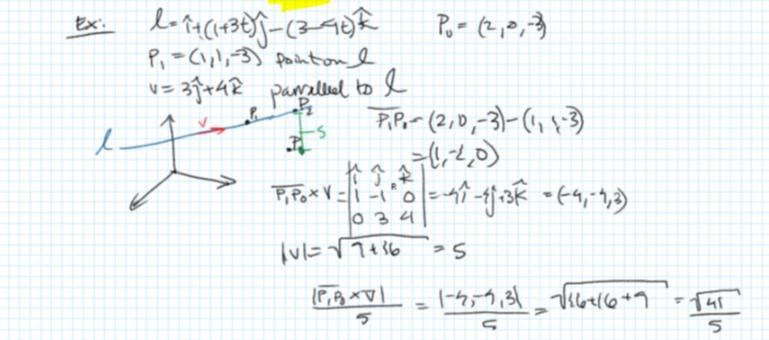 Ex: l = î+(1+3t)ĵ-(3-4t)k̂ P₀ = (2,0,-3)
P₁ = (1,1,-3) point on l
v = 3ĵ+4k̂ parallel to l
l v P₁ P₂ P S
P₁P₀ = (2,0,-3)-(1,1,-3)
=(1,-1,0)
P₁P₀ × v = |î ĵ k̂; 1 -1 0; 0 3 4| = -4î -4ĵ+3k̂ = (-4,-4,3)
|v| = √9+16 = 5
|P₁P₀ × v| / 5 = |-4,-4,3| / 5 = √16+16+9 = √41 / 5